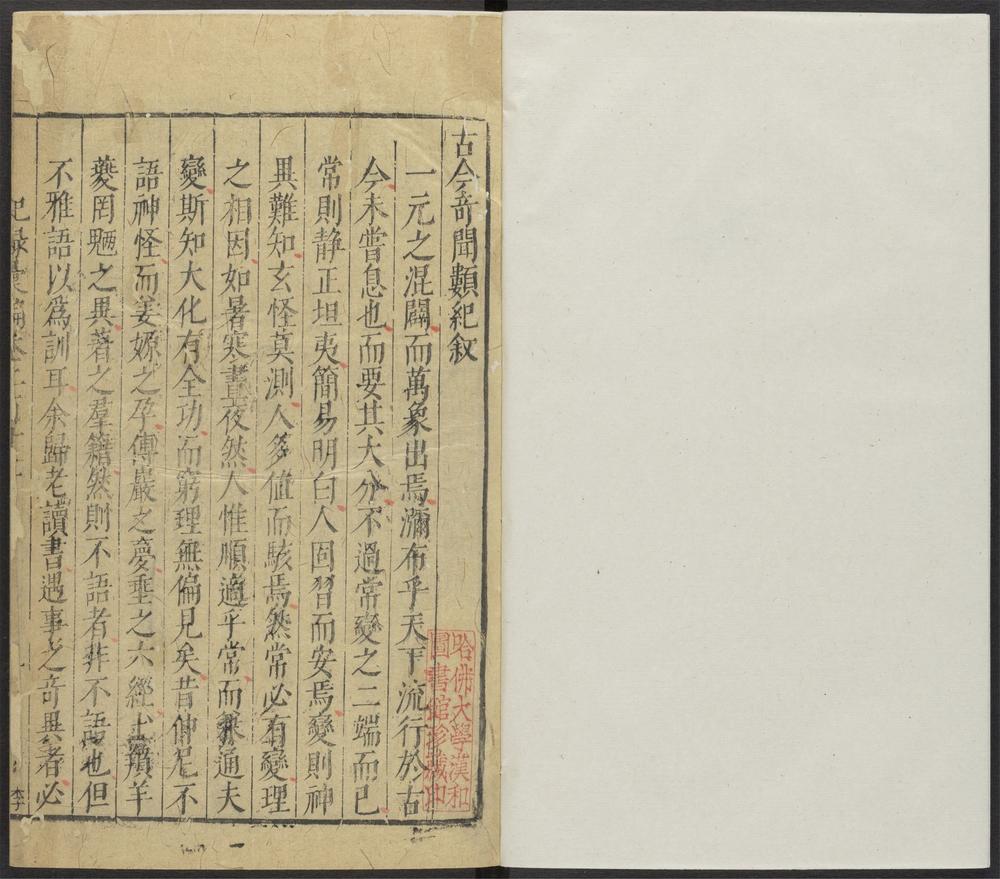 古今奇聞類紀敘
一元之混闢而萬象出焉瀰布乎天下流行於古
今未嘗息也而要其大分不過常變之二端而已
常則静正坦夷簡易明白人固習而安焉變則神
異難知玄怪莫測人多值而駭焉然常必有變理
之相因如暑寒晝夜然人惟順適乎常而兼通夫
變斯知大化有全功而窮理無偏見矣昔仲尼不
語神怪而姜嫄之孕傅巖之夢垂之六經土羵羊
夔罔魎之異著之羣籍然則不語者非不語也但
不雅語以爲訓耳余歸老讀書遇事之奇異者必
哈佛大學漢和
圖書館珍藏印
李